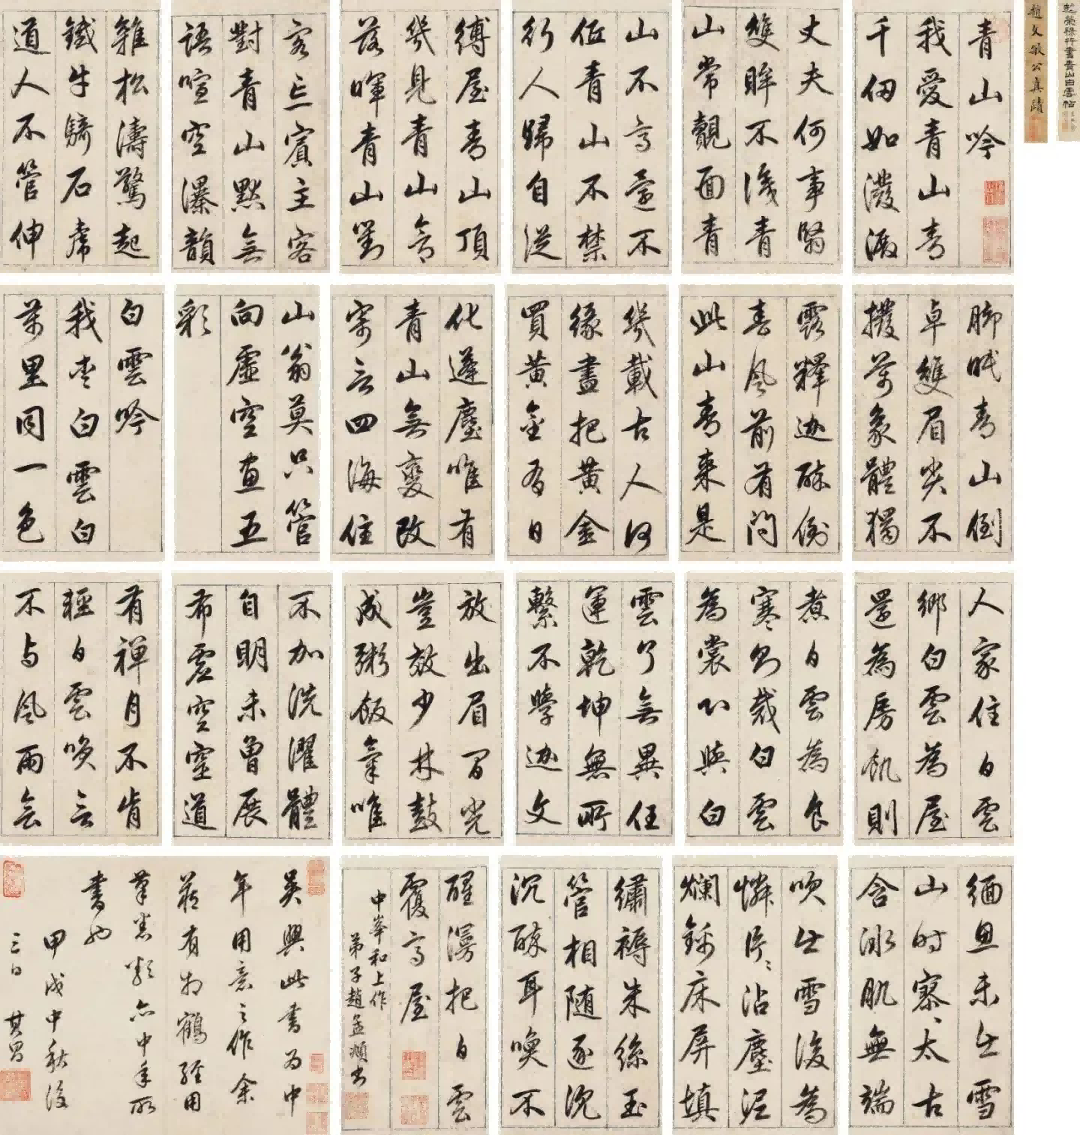 趙榮祿行書青山白雲帖
趙文敏公真蹟
青山吟
我愛青山青
千仞如潑
丈夫何事翳
雙眸不識青
山常覿面青
山不高還不
低青山不禁
行人歸自從
縛屋青山頂
幾見青山含
落暉青山對
客忘賓主客
對青山默無
語喧空瀑韻
雜松濤驚起
鐵牛騎石虎
道人不管伸
脚眠青山倒
卓雙眉尖不
撥萬象體獨
露釋迦酔倒
春風前有問
此山青來是
幾載古人何
緣盡把黃金
買黃金有日
化遂塵唯有
青山無變改
寄言四海住
山翁莫只管
向虛空畫五
彩
白雲吟
我愛白雲白
萬里同一色
人家住白雲
鄉白雲為屋
還為房飢則
煮白雲為食
寒即裁白雲
為裳心與白
雲了無異任
運乾坤無所
繫不學迦文
放出眉間光
豈效少林鼓
成粥飯氣唯
不加洗濯體
自明未曾展
布虛空窒道
有禪月不肯
輕白雲喚言
不與風雨会
緬思未出雪
山時寥寥太古
含冰肌無端
吹出雪後為
憐片片沾塵泥
爛錦床屏填
繡褥朱絲玉
管相隨逐沉
沉酔耳喚不
醒漫把白雲
覆高屋
中峯和上作
弟子趙孟頫書
吳興此書為中
年用意之作余
藏有相鶴經用
筆類亦中年所
書也
甲戌中秋後
三日 其昌